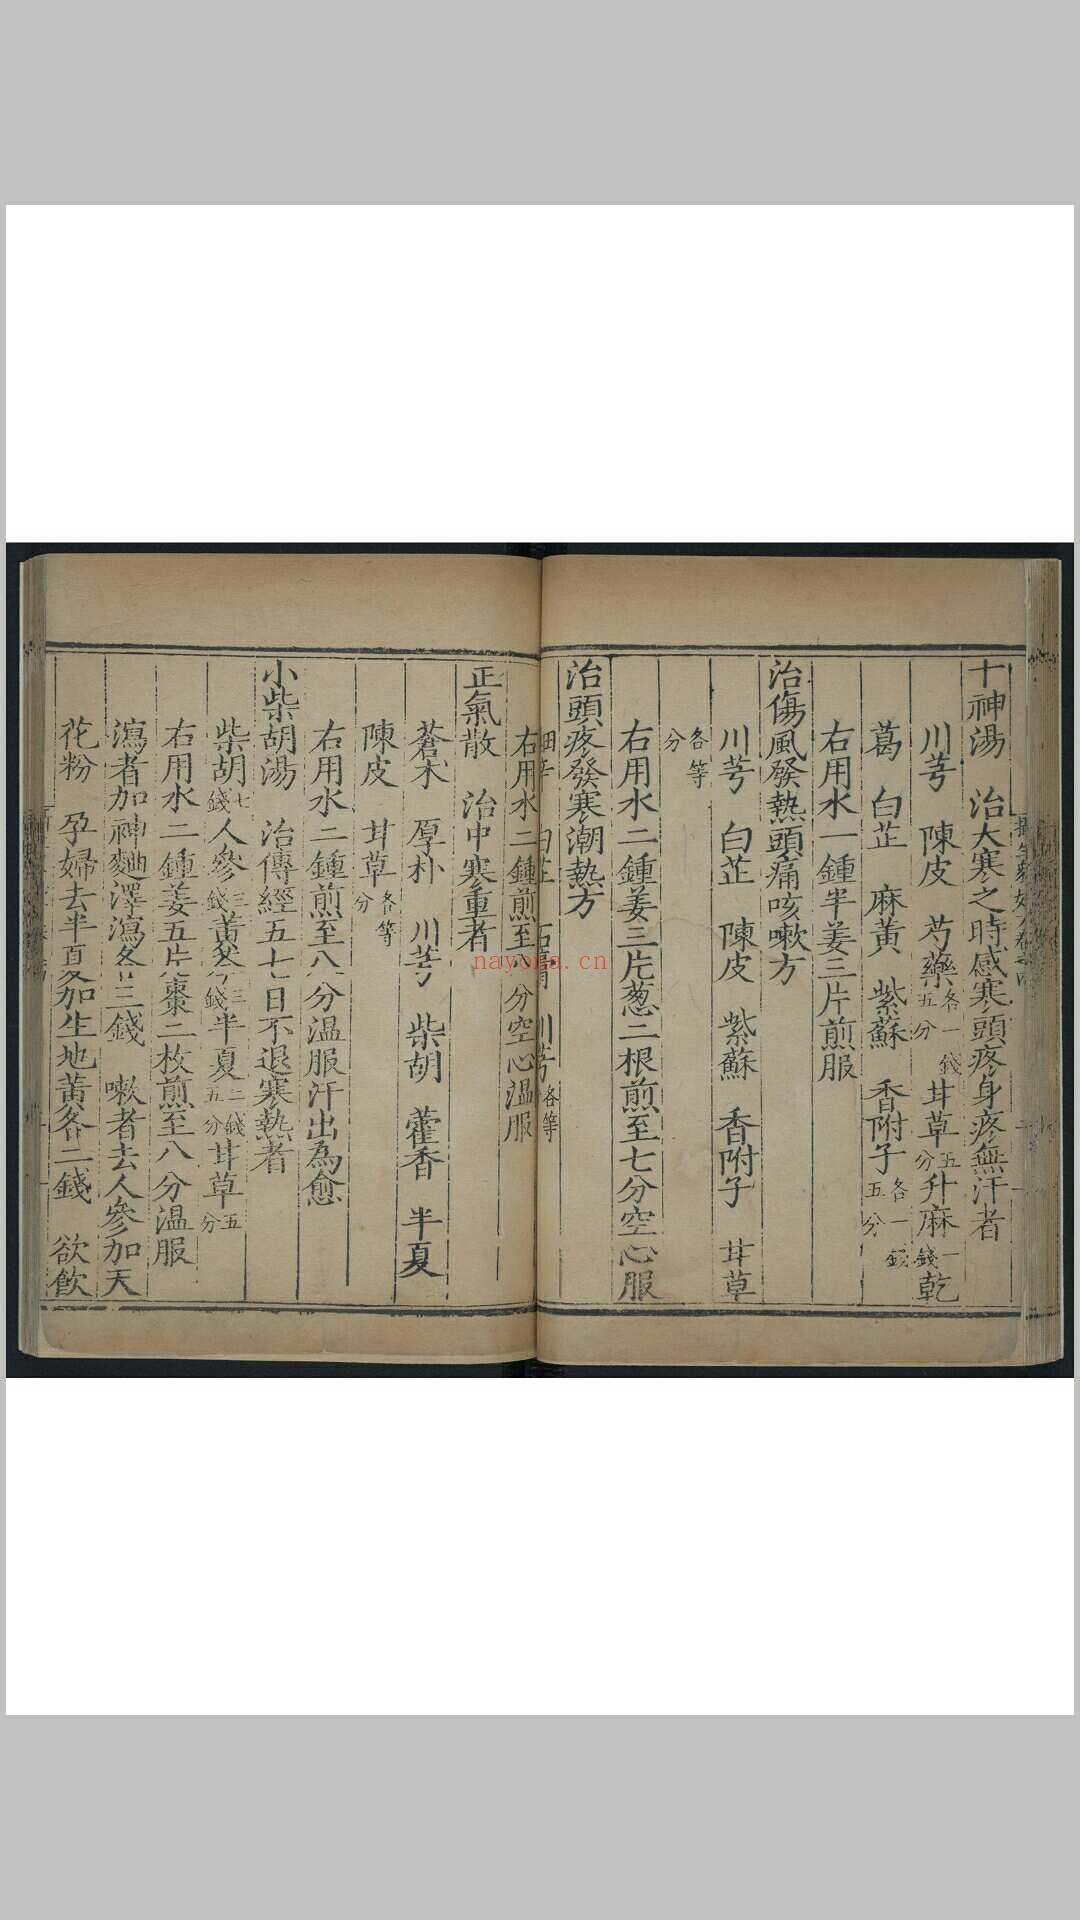 十神湯　治大寒之時感寒頭疼身疼無汗者
川芎　陳皮　芍藥各一錢五分　甘草五分　升麻一錢　乾
葛　白芷　麻黃　紫蘇　香附子各一錢五分
右用水一鍾半姜三片煎服
治傷風發熱頭痛咳嗽方
川芎　白芷　陳皮　紫蘇　香附子　甘草
各等分
右用水二鍾姜三片葱二根煎至七分空心服
治頭疼發寒潮熱方
細辛　白芷　石膏　川芎各等
右用水二鍾煎至八分空心溫服
正氣散　治中寒重者
蒼朮　厚朴　川芎　柴胡　藿香　半夏
陳皮　甘草各等分
右用水二鍾煎至八分溫服汗出為愈
小柴胡湯　治傳經五七日不退寒熱者
柴胡七錢　人參三錢　黃芩三錢　半夏二錢五分　甘草五分
右用水二鍾姜五片棗二枚煎至八分溫服
瀉者加神麯澤瀉各三錢　嗽者去人參加天
花粉　孕婦去半夏加生地黃各二錢　欲飲
nayona.cn